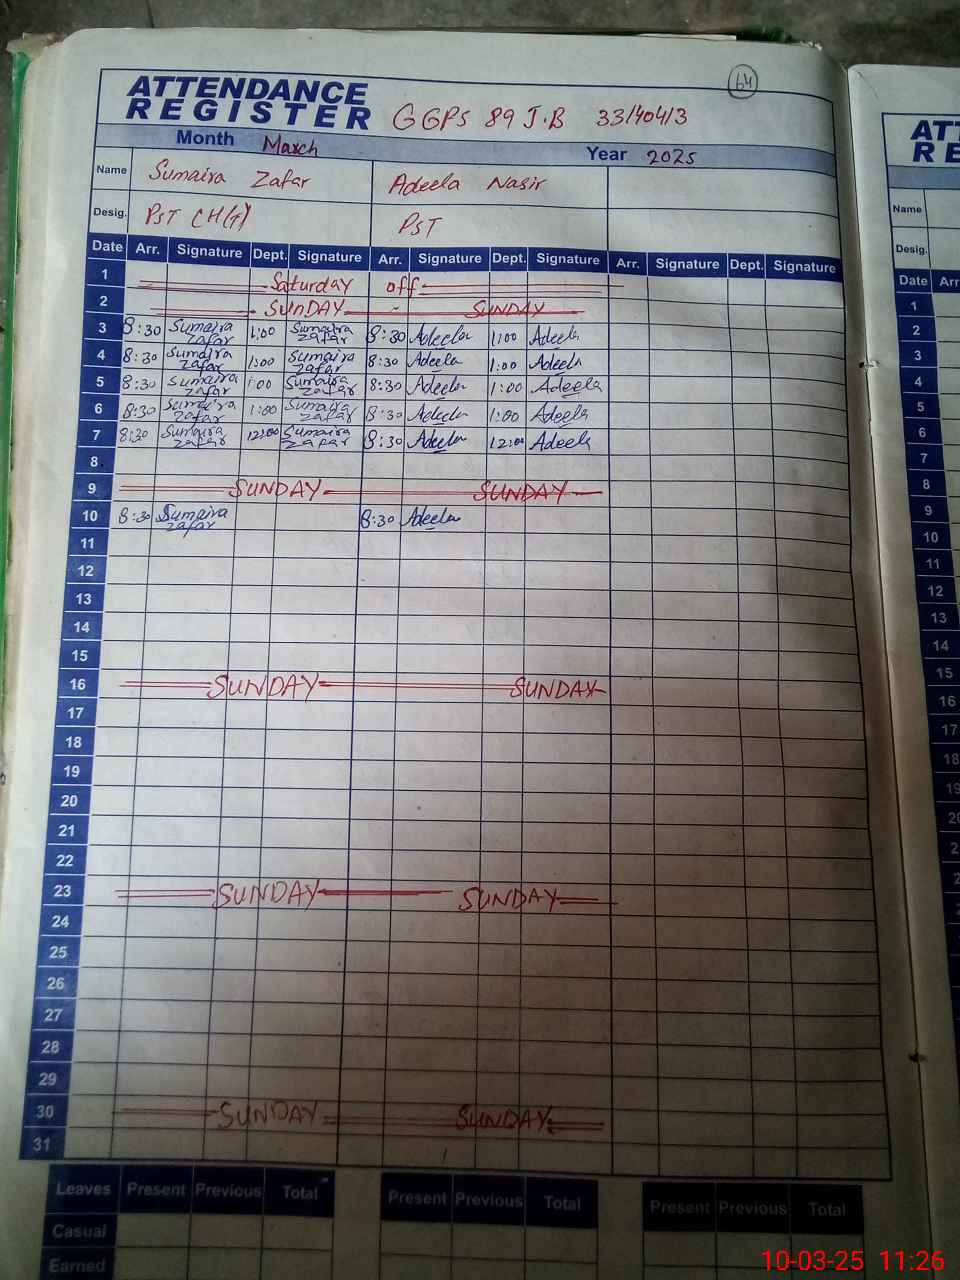 64
ATTENDANCE
REGISTER GGPS 89 J.B 33/404/3
Month March Year 2025
Name Sumaira Zafar Adeela Nasir
Desig. PST PST
Date Arr. Signature Dept. Signature Arr. Signature Dept. Signature Arr. Signature Dept. Signature
1 Saturday off
2 SUNDAY SUNDAY
3 8:30 Sumaira Zafar 1:00 Sumaira Zafar 8:30 Adeela 1:00 Adeela
4 8:30 Sumaira Zafar 1:00 Sumaira Zafar 8:30 Adeela 1:00 Adeela
5 8:30 Sumaira Zafar 1:00 Sumaira Zafar 8:30 Adeela 1:00 Adeela
6 8:30 Sumaira Zafar 1:00 Sumaira Zafar 8:30 Adeela 1:00 Adeela
7 8:30 Sumaira Zafar 12:00 Sumaira Zafar 8:30 Adeela 12:00 Adeela
8
9 SUNDAY SUNDAY
10 8:30 Sumaira Zafar 8:30 Adeela
11
12
13
14
15
16 SUNDAY SUNDAY
17
18
19
20
21
22
23 SUNDAY SUNDAY
24
25
26
27
28
29
30 SUNDAY SUNDAY
31
Leaves Present Previous Total Present Previous Total Present Previous Total
Casual
Earned
Name
Desig.
Date
1
2
3
4
5
6
7
8
9
10
11
12
13
14
15
16
17
18
10-03-25 11:26